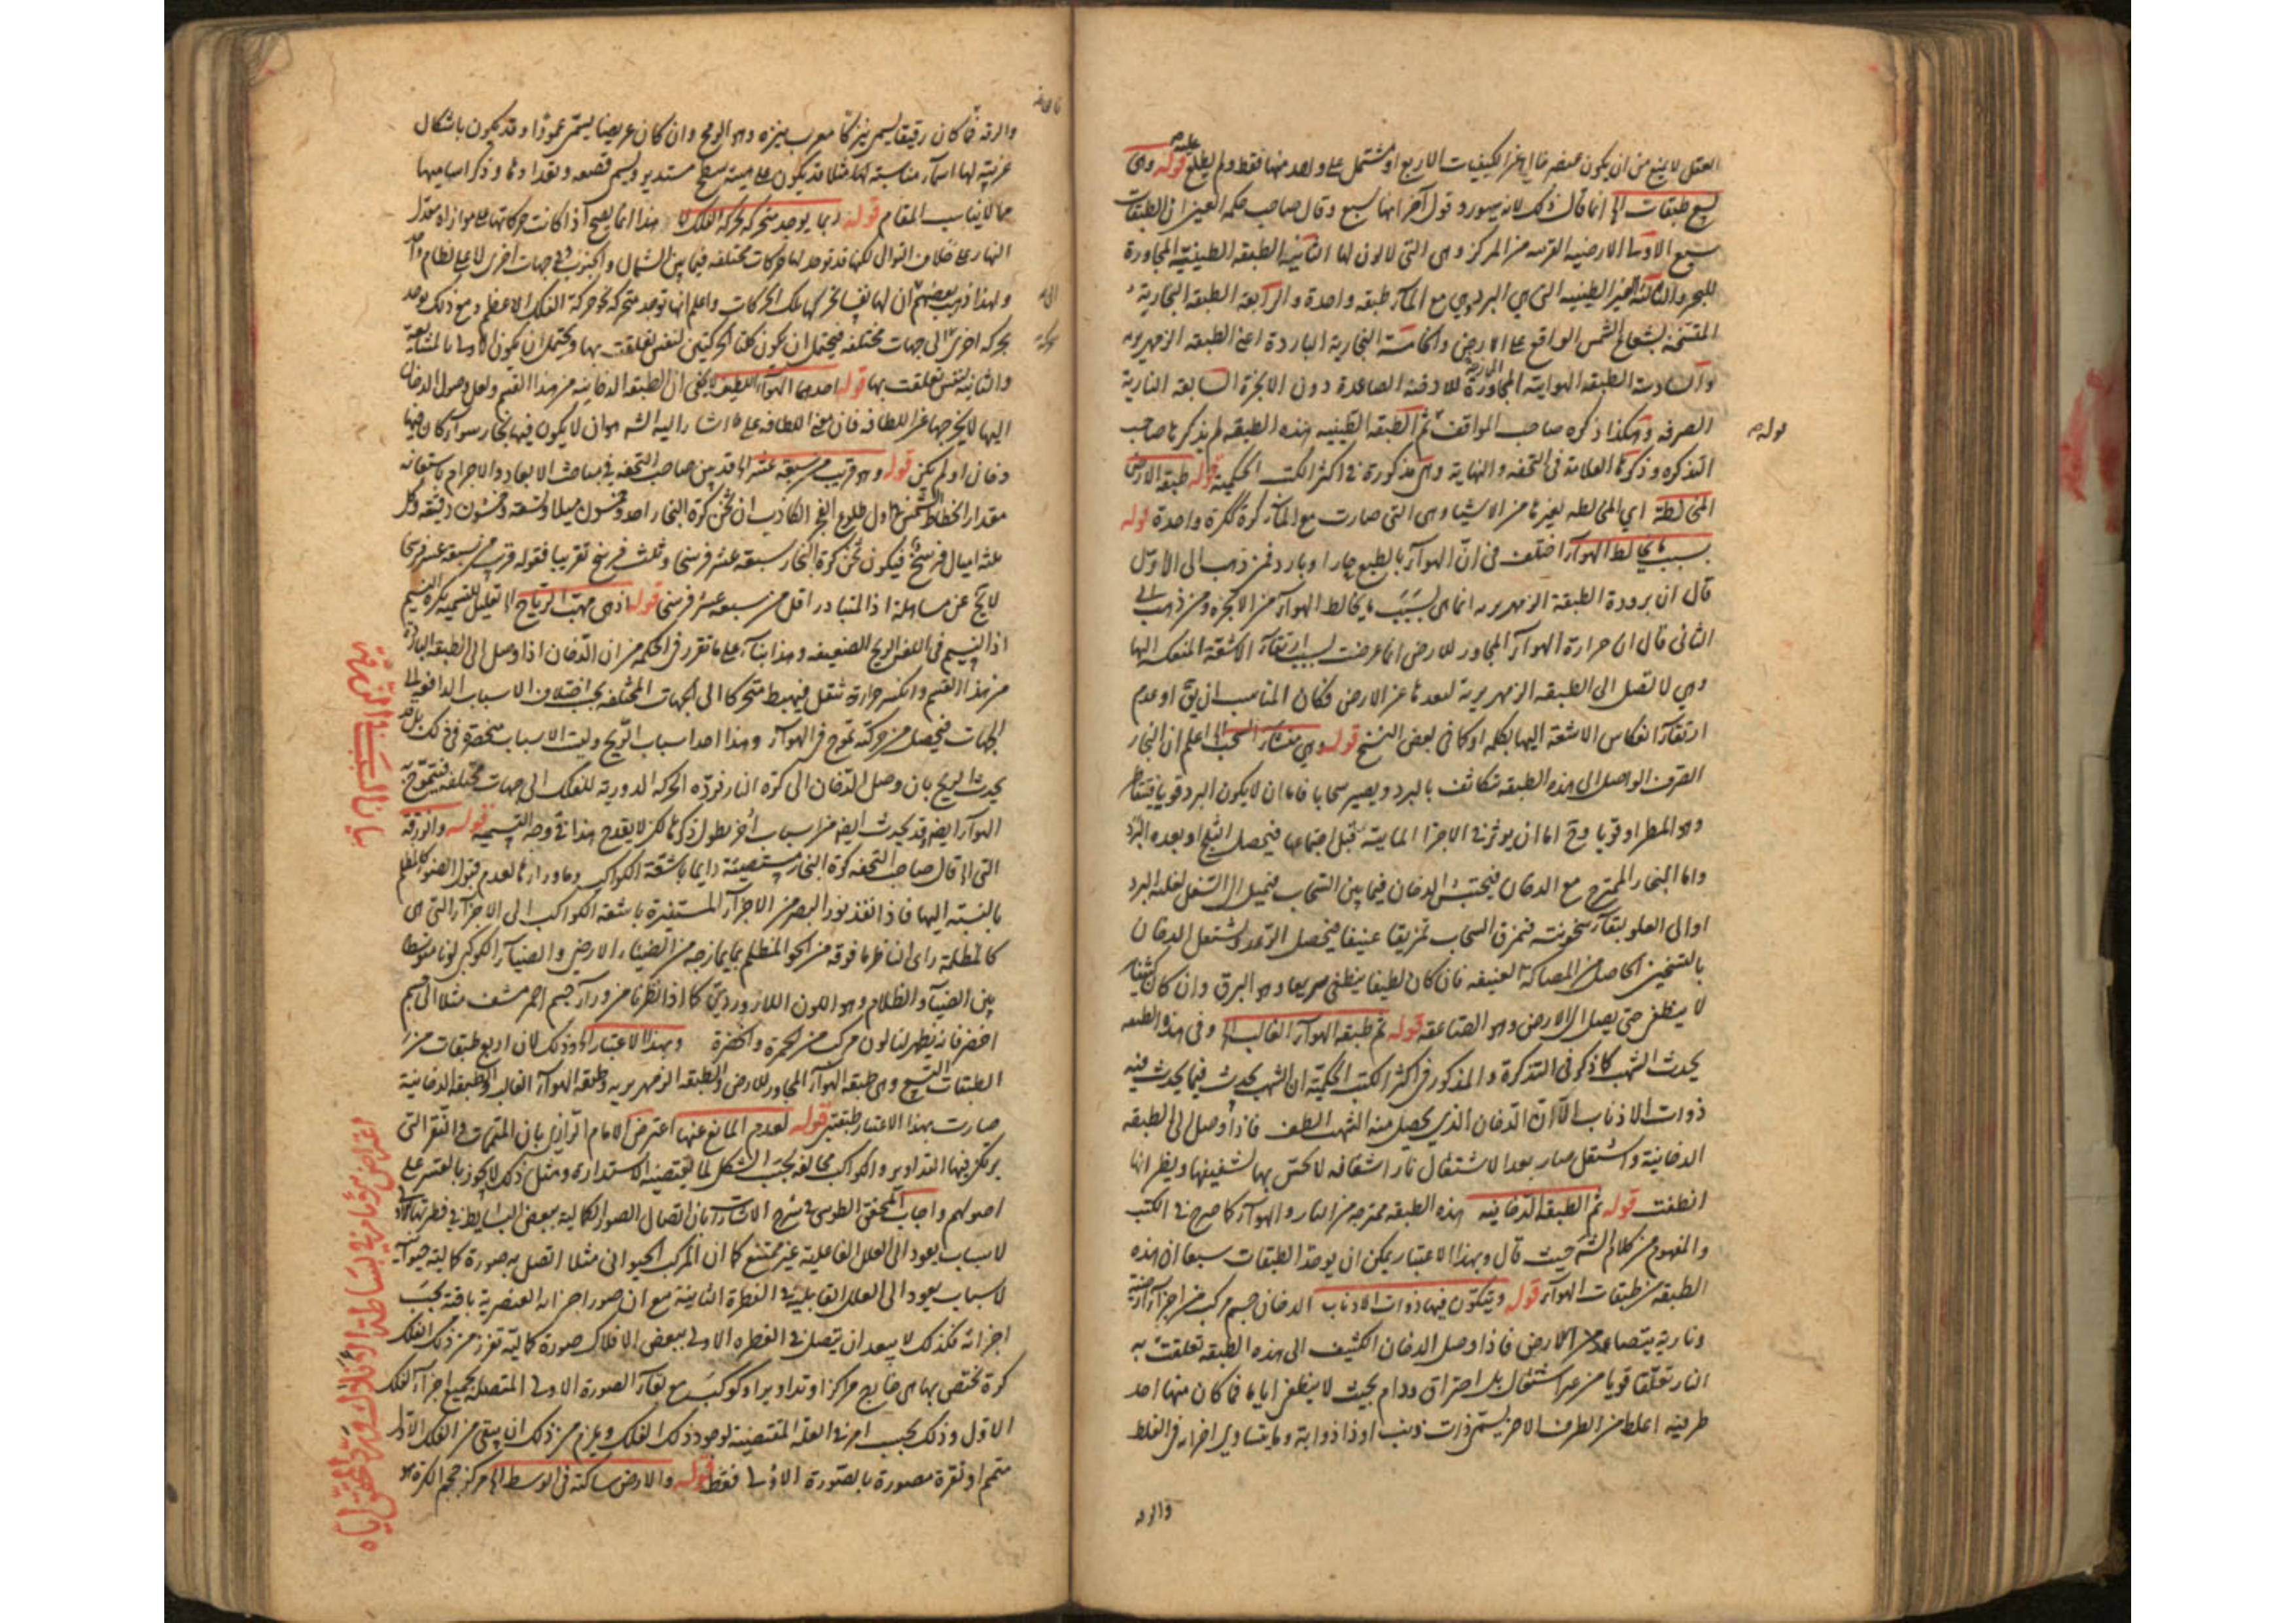 العقل لا يمنع من ان يكون عنصر خاليا عن الكيفيات الاربع او مشتمل على واحد منها فقط ولم يطلع عليه قوله وهى
تسع طبقات الخ انما قال ذلك لانه مشهور وقول آخر انها سبع وقال صاحب حكمة العين ان الطبقات
سبع الاولى الارضية القريبة من المركز وهى التى لا لون لها الثانية الطبقة الطينية المجاورة
للبحر والثالثة الغير الطينية التى هى البر وهى مع الماء طبقة واحدة والرابعة الطبقة البخارية
المتسخنة بشعاع الشمس الواقع على الارض والخامسة البخارية الباردة اعنى الطبقة الزمهريرية
والسادسة الطبقة الهوائية المجاورة للادخنة الصاعدة دون الابخرة السابعة النارية
الصرفة وهكذا ذكره صاحب المواقف ثم الطبقة الطينية هذه الطبقة لم يذكرها صاحب
التذكرة وذكرها العلامة فى التحفة والنهاية وهى مذكورة فى اكثر الكتب الحكمية قوله طبقة الارض
المخالطة اى المخالطة لغيرها من الاشياء وهى التى صارت مع الماء كرة واحدة قوله
بسبب ما يخالط الهواء اختلف فى ان الهواء بالطبع حار او بارد فمن ذهب الى الاول
قال ان برودة الطبقة الزمهريرية انما هى بسبب ما يخالط الهواء من الابخرة ومن ذهب الى
الثانى قال ان حرارة الهواء المجاور للارض انما عرضت بسبب ارتقاء الاشعة المنعكسة اليها
وهى لا تصل الى الطبقة الزمهريرية لبعدها عن الارض وكان المناسب ان يق او عدم
ارتقاء انعكاس الاشعة اليها بكلمة او كما فى بعض النسخ قوله وهى منشأ السحب الخ اعلم ان البخار
الصرف الواصل الى هذه الطبقة تكاثف بالبرد ويصير سحابا فاما ان لا يكون البرد قويا فيتقاطر
وهو المطر او قويا وح اما ان يؤثر فى الاجزاء المائية قبل اجتماعها فيحصل الثلج او بعده البرد
واما البخار الممتزج مع الدخان فيحتبس الدخان فيما بين السحاب فيميل الى التسفل لغلبة البرد
او الى العلو لبقاء سخونته فيمزق السحاب تمزيقا عنيفا فيحصل الرعد ويشتعل الدخان
بالتسخين الحاصل من المصاكة العنيفة فان كان لطيفا ينطفى سريعا وهو البرق وان كان كثيفا
لا ينطفى حتى يصل الى الارض وهو الصاعقة قوله ثم طبقة الهواء الغالب الخ وفى هذه الطبقة
يحدث الشهب كما ذكر فى التذكرة والمذكور فى اكثر الكتب الحكمية ان الشهب يحدث فيما يحدث فيه
ذوات الاذناب الا ان الدخان الذى يحصل منه الشهب الطف فاذا وصل الى الطبقة
الدخانية واشتعل صار بعد الاشتعال نارا شفافة لا تحس بها لشفيفها ويظن انها
انطفت قوله ثم الطبقة الدخانية هذه الطبقة ممتزجة من النار والهواء كما صرح فى الكتب
والمفهوم من كلام الشه حيث قال وبهذا الاعتبار يمكن ان يوخذ الطبقات سبعا ان هذه
الطبقة من طبقات الهواء قوله ويتكون فيها ذوات الاذناب الدخان جسم مركب من اجزاء ارضية
ونارية يتصاعد من الارض فاذا وصل الدخان الكثيف الى هذه الطبقة تعلقت به
النار تعلقا قويا من غير اشتعال بل احتراق ودام بحيث لا ينطفى اياما فما كان منها احد
طرفيه اغلظ من الطرف الاخر يسمى ذات ذنب او ذا ذوابة وما يتساوى اجزاه فى الغلظ
والرقة فما كان رقيقا يسمى نيزكا معرب نيزه وهو الرمح وان كان عريضا يسمى عمودا وقد يكون باشكال
غريبة لها اسماء مناسبة لها مثلا قد يكون على هيئة سطح مستدير ويسمى قصعة
مما لا يناسب المقام قوله ربما يوجد متحركة بحركة الفلك الخ هذا انما يصح اذا كانت حركاتها على موازاة معدل
النهار على خلاف التوالى لكنها قد توجد لها حركات مختلفة فيما بين الشمال والجنوب وفى جهات اخرى لا على نظام واحد
ولهذا ذهب بعضهم ان لها نفسا تحركها بتلك الحركات واعلم انها توجد متحركة نحو حركة الفلك الاعظم ومع ذلك يوجد
بحركة اخرى الى جهات مختلفة فيحتمل ان يكون كلتا الحركتين لنفس تعلقت بها ويحتمل ان يكون الاولى بالمشايعة
والثانية لنفس تعلقت بها قوله احدهما الهواء اللطيف لا يخفى ان الطبقة الدخانية من هذا القسم ولعل وصول الدخان
اليها لا يخرجها عن اللطافة فان معنى اللطافة على ما اشار اليه الشه هو ان لا يكون فيها بخار سواء كان فيها
دخان او لم يكن قوله وهو قريب من سبعة عشر الخ قد بين صاحب التحفة فى مباحث الابعاد والاجرام باستعانة
مقدار انحطاط الشمس اول طلوع الفجر الكاذب ان ثخن كرة البخار احد وخمسون ميلا وتسعة وخمسون دقيقة وكل
ثلثة اميال فرسخ فيكون ثخن كرة البخار سبعة عشر فرسخا وثلث فرسخ تقريبا فقوله قريب من سبعة عشر فرسخا
لا يخ عن مساهلة اذ المتبادر اقل من سبعة عشر فرسخا قوله اذ هى مهب الرياح الخ تعليل للتسمية بكرة النسيم
اذ النسيم فى اللغة الريح الضعيفة وهذا بناء على ما تقرر فى الحكمة من ان الدخان اذا وصل الى الطبقة الباردة
من هذا القسم وانكسر حرارته ثقل فيهبط متحركا الى الجهات المختلفة بحسب اختلاف الاسباب الدافعة الى
الجهات فيحصل من حركته تموج فى الهواء وهذا احد اسباب الريح وليت الاسباب منحصرة فى ذلك بل قد
يحدث الريح بان وصل الدخان الى كرة النار فرده الحركة الدورية للفلك الى جهات مختلفة فيتموج به
الهواء ايضا وقد يحدث ايضا من اسباب اخر يطول ذكرها لكن لا يقدح هذا فى وجه التسمية قوله والزرقة
التى الخ قال صاحب التحفة كرة البخار مستضيئة دائما باشعة الكواكب وما وراءها لعدم قبول الضوء كالمظلم
بالنسبة اليها فاذا نفذ نور البصر من الاجزاء المستنيرة باشعة الكواكب الى الاجزاء التى هى
كالمظلمة راى الناظر ما فوقه من الجو المظلم بما يمازجه من الضياء الارضى والضياء الكوكبى لونا متوسطا
بين الضياء والظلام وهو اللون اللازوردى كما اذا نظرنا من وراء جسم احمر مشف مثلا الى جسم
اخضر فانه يظهر لنا لون مركب من الحمرة والخضرة وبهذا الاعتبار الخ وذلك لان اربع طبقات من
الطبقات التسع وهى طبقة الهواء المجاور للارض والطبقة الزمهريرية وطبقة الهواء الغالب والطبقة الدخانية
صارت بهذا الاعتبار طبقتين قوله لعدم المانع عنها اعترض الامام الرازى بان المتممات والنقر التى
يرتكز فيها التداوير والكواكب مخالفة بحسب الشكل لما يقتضيه الاستدارة ومثل ذلك لا يجوز بالقسر على
اصولهم واجاب المحقق الطوسى فى شرح الاشارات بان اتصال الصور الكمالية ببعض البسايط فى فطرتها الاولى
لاسباب يعود الى العلل الفاعلية غير ممتنع كما ان المركب الحيوانى مثلا اتصل به صورة كمالية حيوانية
لاسباب يعود الى العلل القابلية فى الفطرة الثانية مع ان صور اجزاءه العنصرية باقية بحسب
اجزائه فكذلك لا يبعد ان يتصل فى الفطرة الاولى ببعض الافلاك صورة كمالية تفرز من ذلك الفلك
كرة تختص بها هى خارج مركز او تدوير او كوكب مع بقاء الصورة الاولى المتصلة بجميع اجزاء الفلك
الاول وذلك بحسب امر فى العلة المقتضية لوجود ذلك الفلك ويلزم من ذلك ان يبقى من الفلك الاول
متمم او نقرة مصورة بالصورة الاولى فقط قوله والارض ساكنة فى الوسط الخ مركز حجم الكرة هو